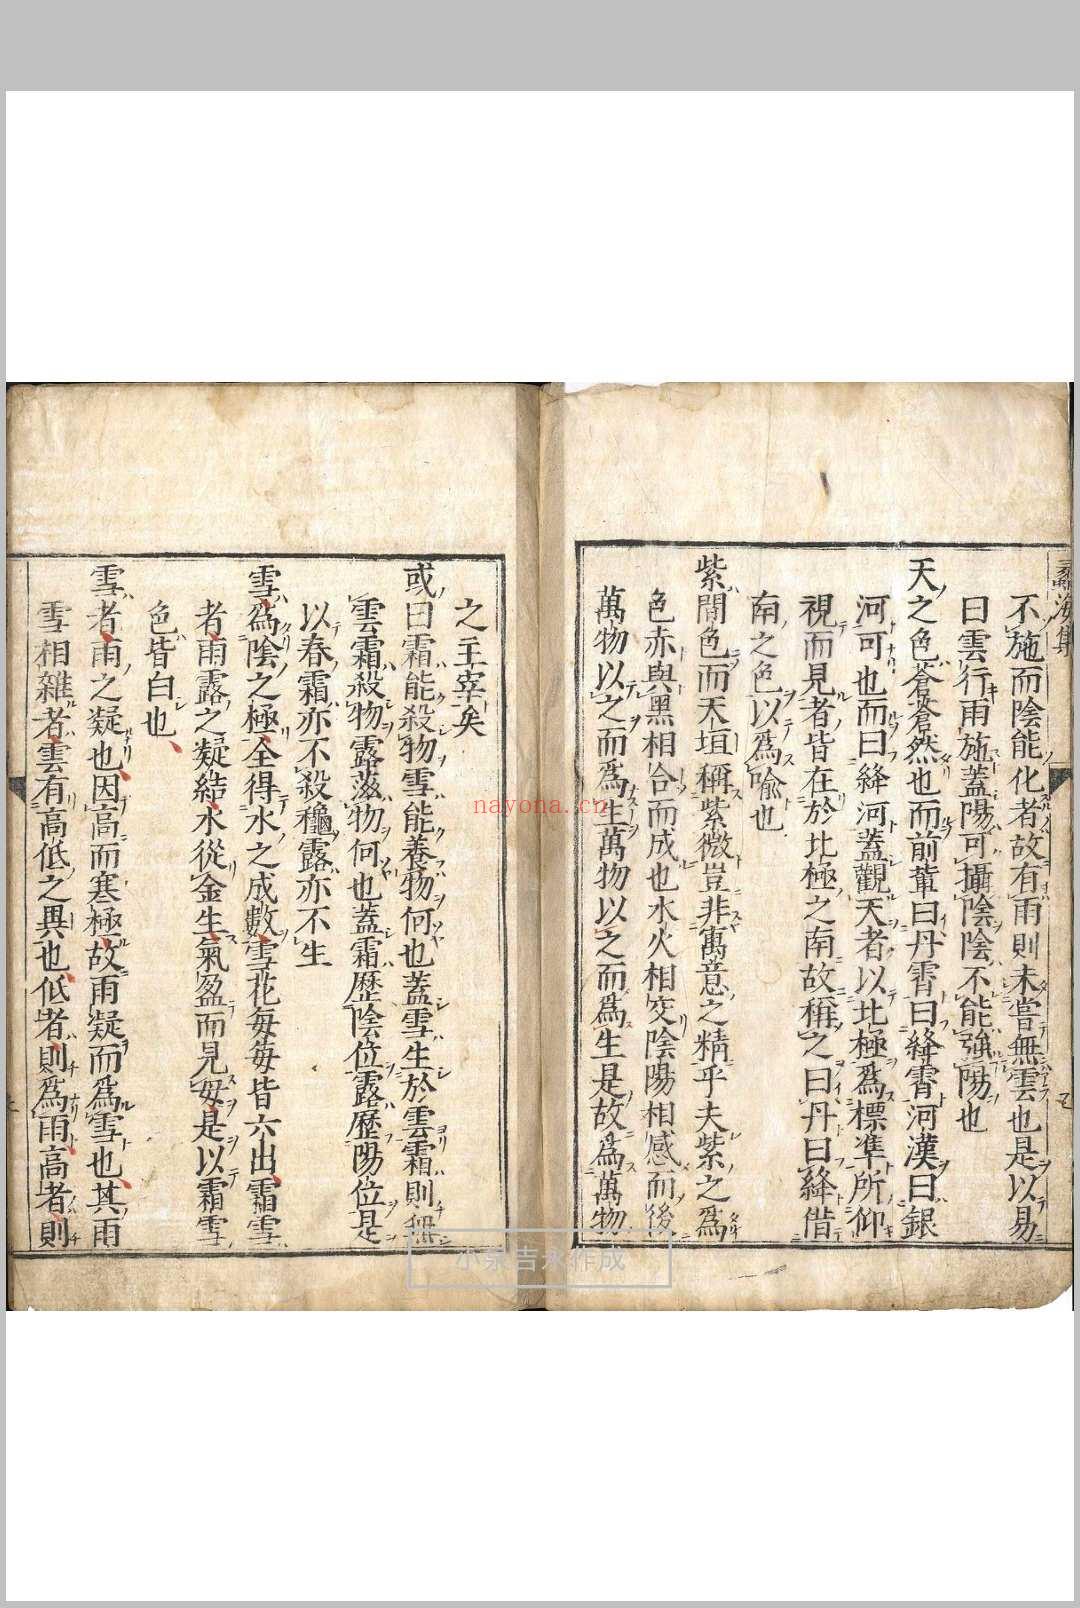 蠡海集
不施而陰能化者故有雨則未嘗無雲也是以易
曰雲行雨施蓋陽可攝陰陰不能強陽也
天之色蒼蒼然也而前輩曰丹霄曰絳霄河漢曰銀
河可也而曰絳河蓋觀天者以北極爲標準所仰
視而見者皆在於北極之南故稱之曰丹曰絳借
南之色以爲喻也
紫閒色而天垣稱紫微豈非寓意之精乎夫紫之爲
色赤與黑相合而成也水火相交陰陽相感而後
萬物以之而爲生萬物以之而爲生是故爲萬物
之主宰矣
或曰霜能殺物雪能養物何也蓋雪生於雲霜則無
雲霜殺物露滋物何也蓋霜歷陰位露歷陽位是
以春霜亦不殺穐露亦不生
雪爲陰之極全得水之成數雪花每每皆六出霜雪
者雨露之凝結水從金生氣盈而見母是以霜雪
色皆白也
雪者雨之凝也因高而寒極故雨凝而爲雪也其雨
雪相雜者雲有高低之異也低者則爲雨高者則
nayona.cn
小泉吉永作成